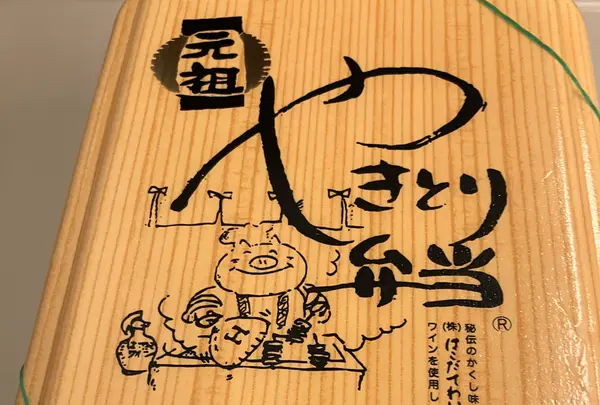 元祖
やきとり
弁当
®
H
秘伝のかくし味
(株)はこだてわい
ワインを使用し